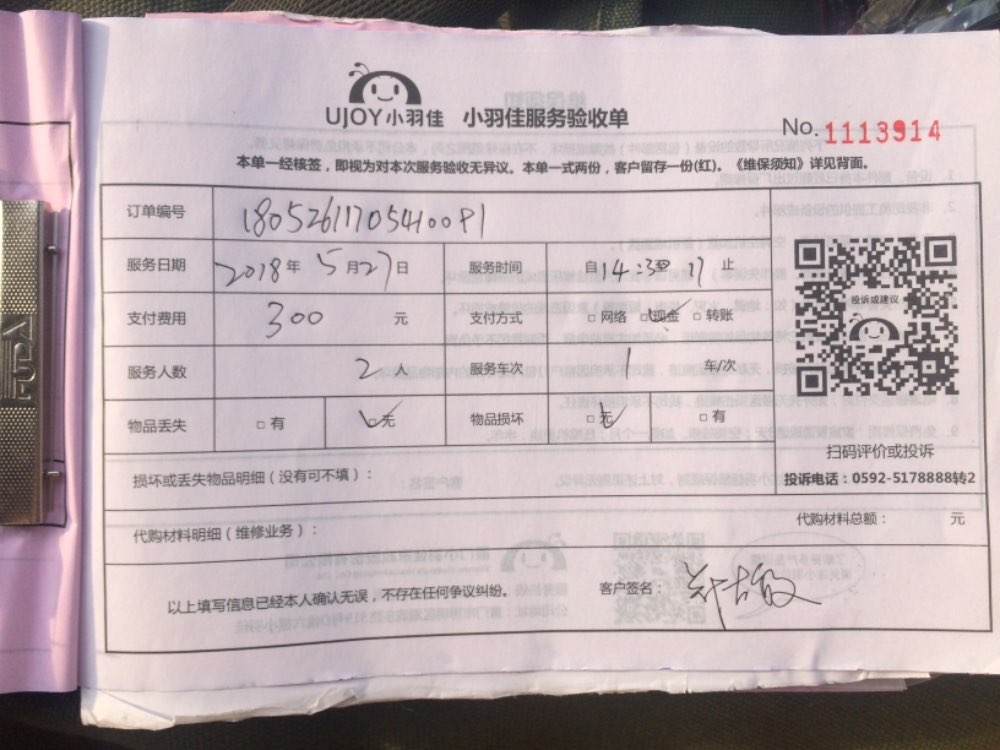 UJOY小羽佳 小羽佳服务验收单
No. 1113914
本单一经核签，即视为对本次服务验收无异议。本单一式两份，客户留存一份(红)。《维保须知》详见背面。
订单编号 18052611705410091
服务日期 2018年 5月27日 服务时间 自14:30 17止
支付费用 300 元 支付方式 □ 网络 □ 现金 □ 转账
投诉或建议
服务人数 2人 服务车次 1 车/次
物品丢失 □ 有 □ 无 物品损坏 □ 无 □ 有
扫码评价或投诉
损坏或丢失物品明细（没有可不填）：
投诉电话：0592-5178888转2
代购材料明细（维修业务）：
代购材料总额： 元
以上填写信息已经本人确认无误，不存在任何争议纠纷。
客户签名：